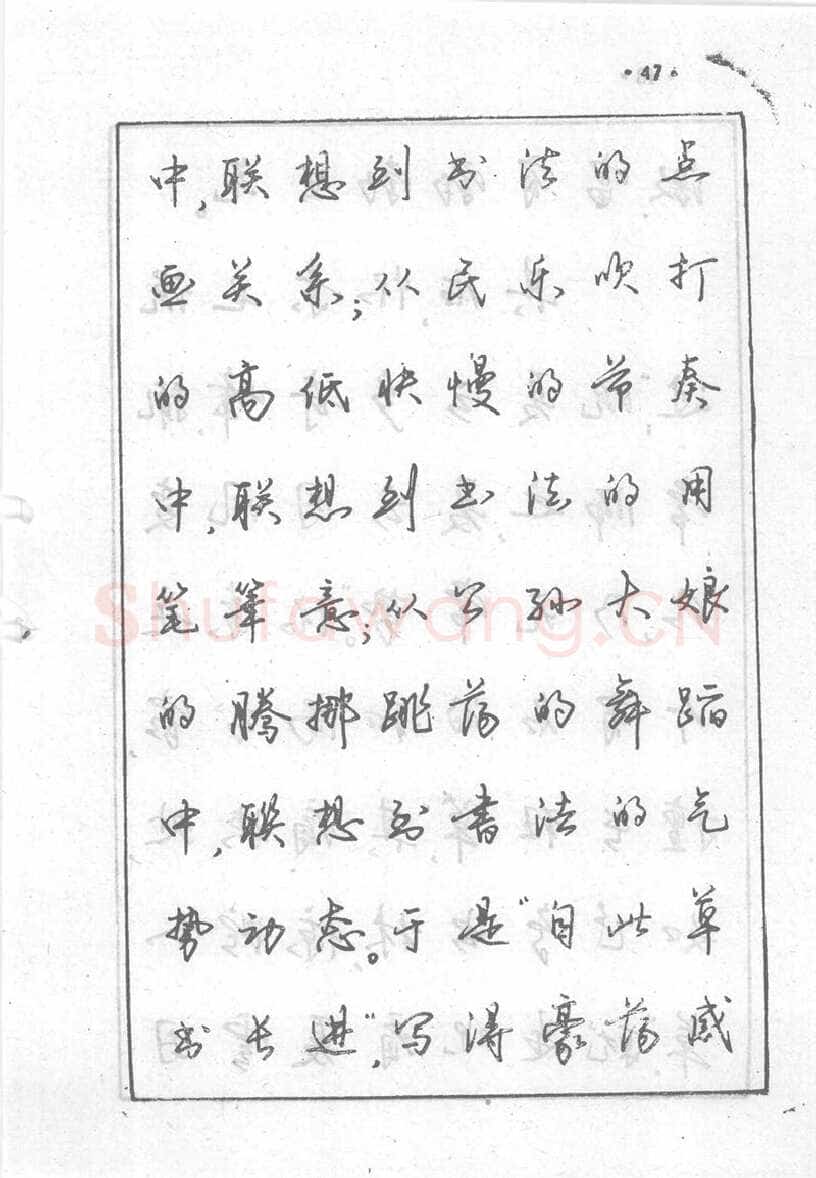 ·47·
中,联想到书法的点
画关系;从民乐吹打
的高低快慢的节奏
中,联想到书法的用
笔笔意;从公孙大娘
的腾挪跳荡的舞蹈
中,联想到书法的气
势动态。于是"自此草
书长进",写得豪荡感
Shufawang.CN